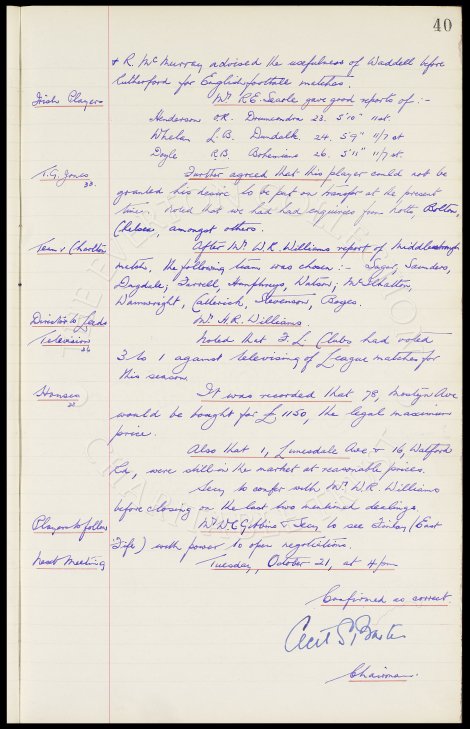 40
+ R. McMurray advised the usefulness of Waddell before
Rutherford for English football matches.
Irish Players Mr R.E. Searle gave good reports of :-
Henderson O.R. Drumcondra 23. 5'10" 11 st.
Whelan L.B. Dundalk. 24. 5'9" 11/7 st
Doyle R.B. Bohemians 26. 5'11" 11/7 st.
T.G. Jones Further agreed that this player could not be
33.
granted his desire to be put on transfer at the present
time. Noted that we had had enquiries from Notts, Bolton,
Chelsea, amongst others.
Team v Charlton After Mr W.R. Williams report of Middlesbrough
match, the following team was chosen :- Sagar, Saunders,
Dugdale; Farrell, Humphreys, Watson; McIlhatton,
Wainwright, Catterick, Stevenson, Boyes.
Director to Leeds Mr. H.R. Williams.
Television Noted that F.L. Clubs had voted
36
3 to 1 against televising of League matches for
this season.
Houses It was recorded that 78, Mostyn Ave
would be bought for £1150, the legal maximum
price.
Also that 1, Lunesdale Ave + 16, Walford
Rd, were still in the market at reasonable prices.
Secy to confer with Mr W.R. Williams
before closing on the last two mentioned dealings.
Players to follow Mr W.C. Gibbins & Secy to see Finlay (East
Fife) with power to open negotiations.
Next Meeting Tuesday, October 21, at 4 pm
Confirmed as correct
Cecil S. Baxter
Chairman.